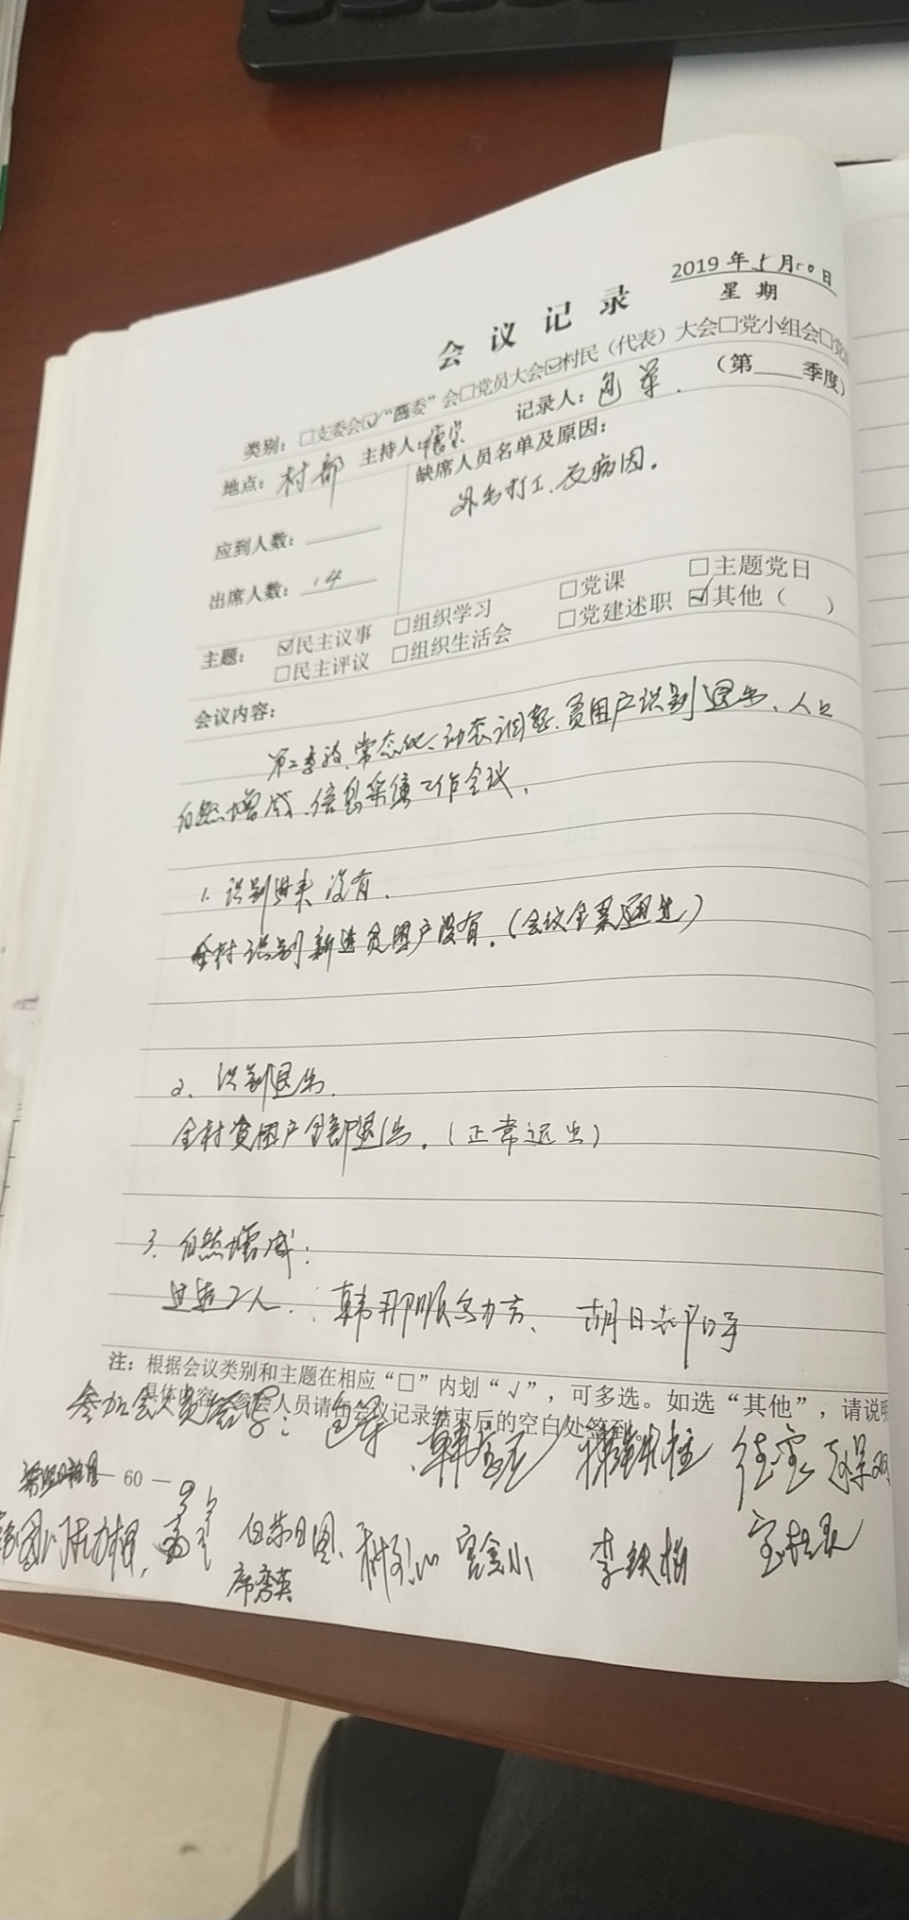 会议记录
2019年5月10日
星期
类别：□支委会☑“两委”会□党员大会☑村民（代表）大会□党小组会□党
（第 季度）
地点：村部 主持人： 记录人：包军
应到人数：
缺席人员名单及原因：
外出打工、及病因。
出席人数：14
主题：☑民主议事 □组织学习 □党课 □主题党日
□民主评议 □组织生活会 □党建述职 ☑其他（ ）
会议内容：
第二季度、常态化、动态调整、贫困户识别退出、人口
自然增减、信息采集工作会议。
1. 识别进来 没有.
全村识别新进贫困户没有。（会议全票通过）
2、识别退出.
全村贫困户全部退出。（正常退出）
3. 自然增减：
2人. 韩那顺乌力吉、 胡日
注：根据会议类别和主题在相应“□”内划“√”，可多选。如选“其他”，请说明
具体内容。参会人员请在会议记录结束后的空白处签到。
参加会人员签字：包军
— 60 —
白 席秀英 宫金小 李铁柱